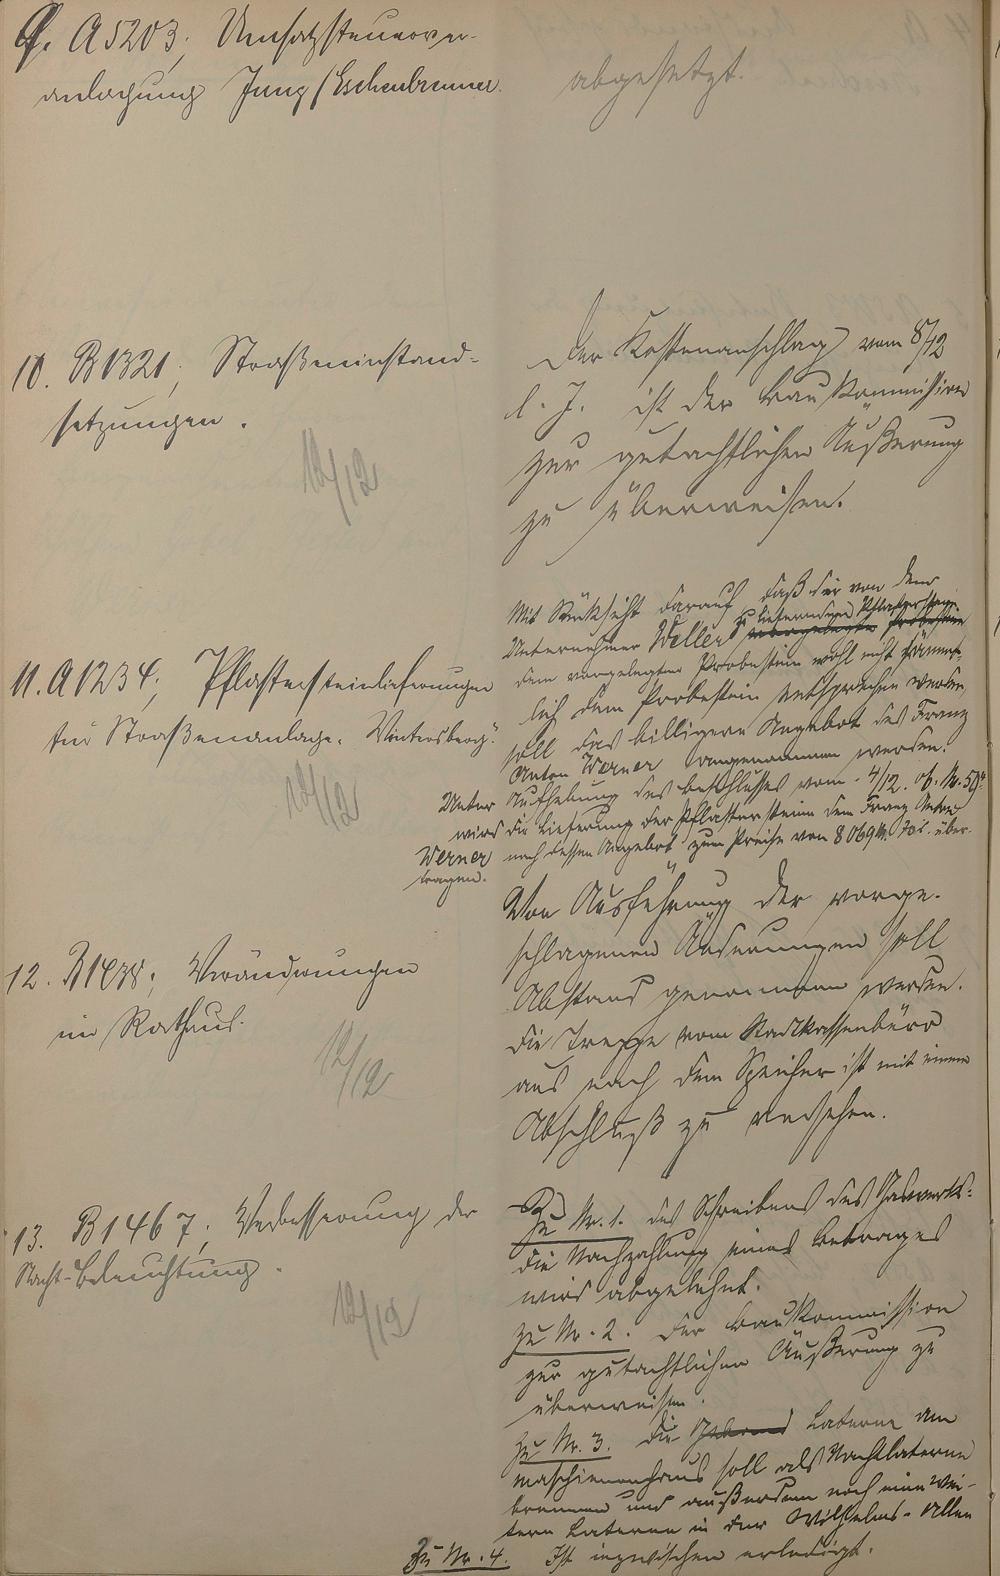 9. A 5203; Umsatzsteuerver-
anlagung Jung/Eschenbrenner.
abgesetzt.
10. B 1321; Straßeninstand-
setzungen.
12/12
Der Kostenanschlag vom 8/12
l. J. ist der Baukommission
zur gutachtlichen Äußerung
zu überweisen.
11. A 1234; Pflastersteinlieferungen
für Straßenanlage "Wintersberg".
12/12
Mit Rücksicht darauf, daß die von dem
Unternehmer Weller zu liefernden Pflastersteine
dem vorgelegten Probestein wohl nicht sämmt-
lich dem Probestein entsprechen werden,
soll das billigere Angebot des Franz
Anton Werner angenommen werden.
Unter Aufhebung des Beschlusses vom 4/12. ob. Nr.
wird die Lieferung der Pflastersteine dem Franz Anton
Werner nach dessen Angebot zum Preise von 8069 M. 70 ₰. über-
tragen.
12. B 1478; Veränderungen
im Rathaus.
12/12
Von Ausführung der vorge-
schlagenen Änderungen soll
Abstand genommen werden.
Die Treppe vom Stadtkassenbüro
aus nach dem Speicher ist mit einem
Abschluß zu versehen.
13. B 1467; Verbesserung der
Nacht-Beleuchtung.
12/12
Zu Nr. 1. des Schreibens des Gaswerks:
Die Nachzahlung eines Betrages
wird abgelehnt.
Zu Nr. 2. Der Baukommission
zur gutachtlichen Äußerung zu
überweisen.
Zu Nr. 3. Die Laterne am
Maschinenhaus soll als Nachtlaterne
brennen und außerdem noch eine wei-
tere Laterne in der Wilhelms-Allee
Zu Nr. 4. Ist inzwischen erledigt.